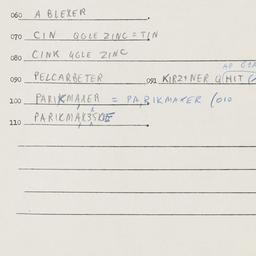 060 A BLEKER
070 CIN GOLE ZINC = TIN
080 CINK GOLE ZINC
090 PELCARBETER 091 KIRZTNER G (HIT
100 PARIKMAKER = PARIKMAKER (010
110